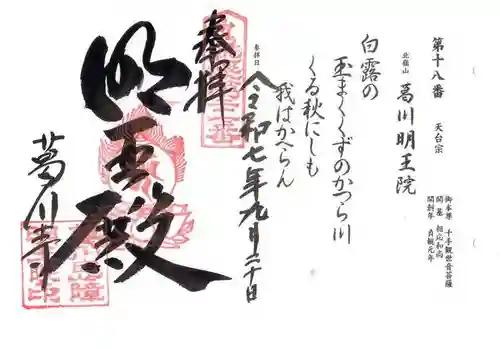 第十八番
天台宗
北嶺山
葛川明王院
御本尊 千手観世音菩薩
開基 相応和尚
開創年 貞観元年
白露の
玉まくくずのかつら川
くる秋にしも
我はかへらん
参拝日
令和七年九月二十日
奉拝
明王殿
葛川寺